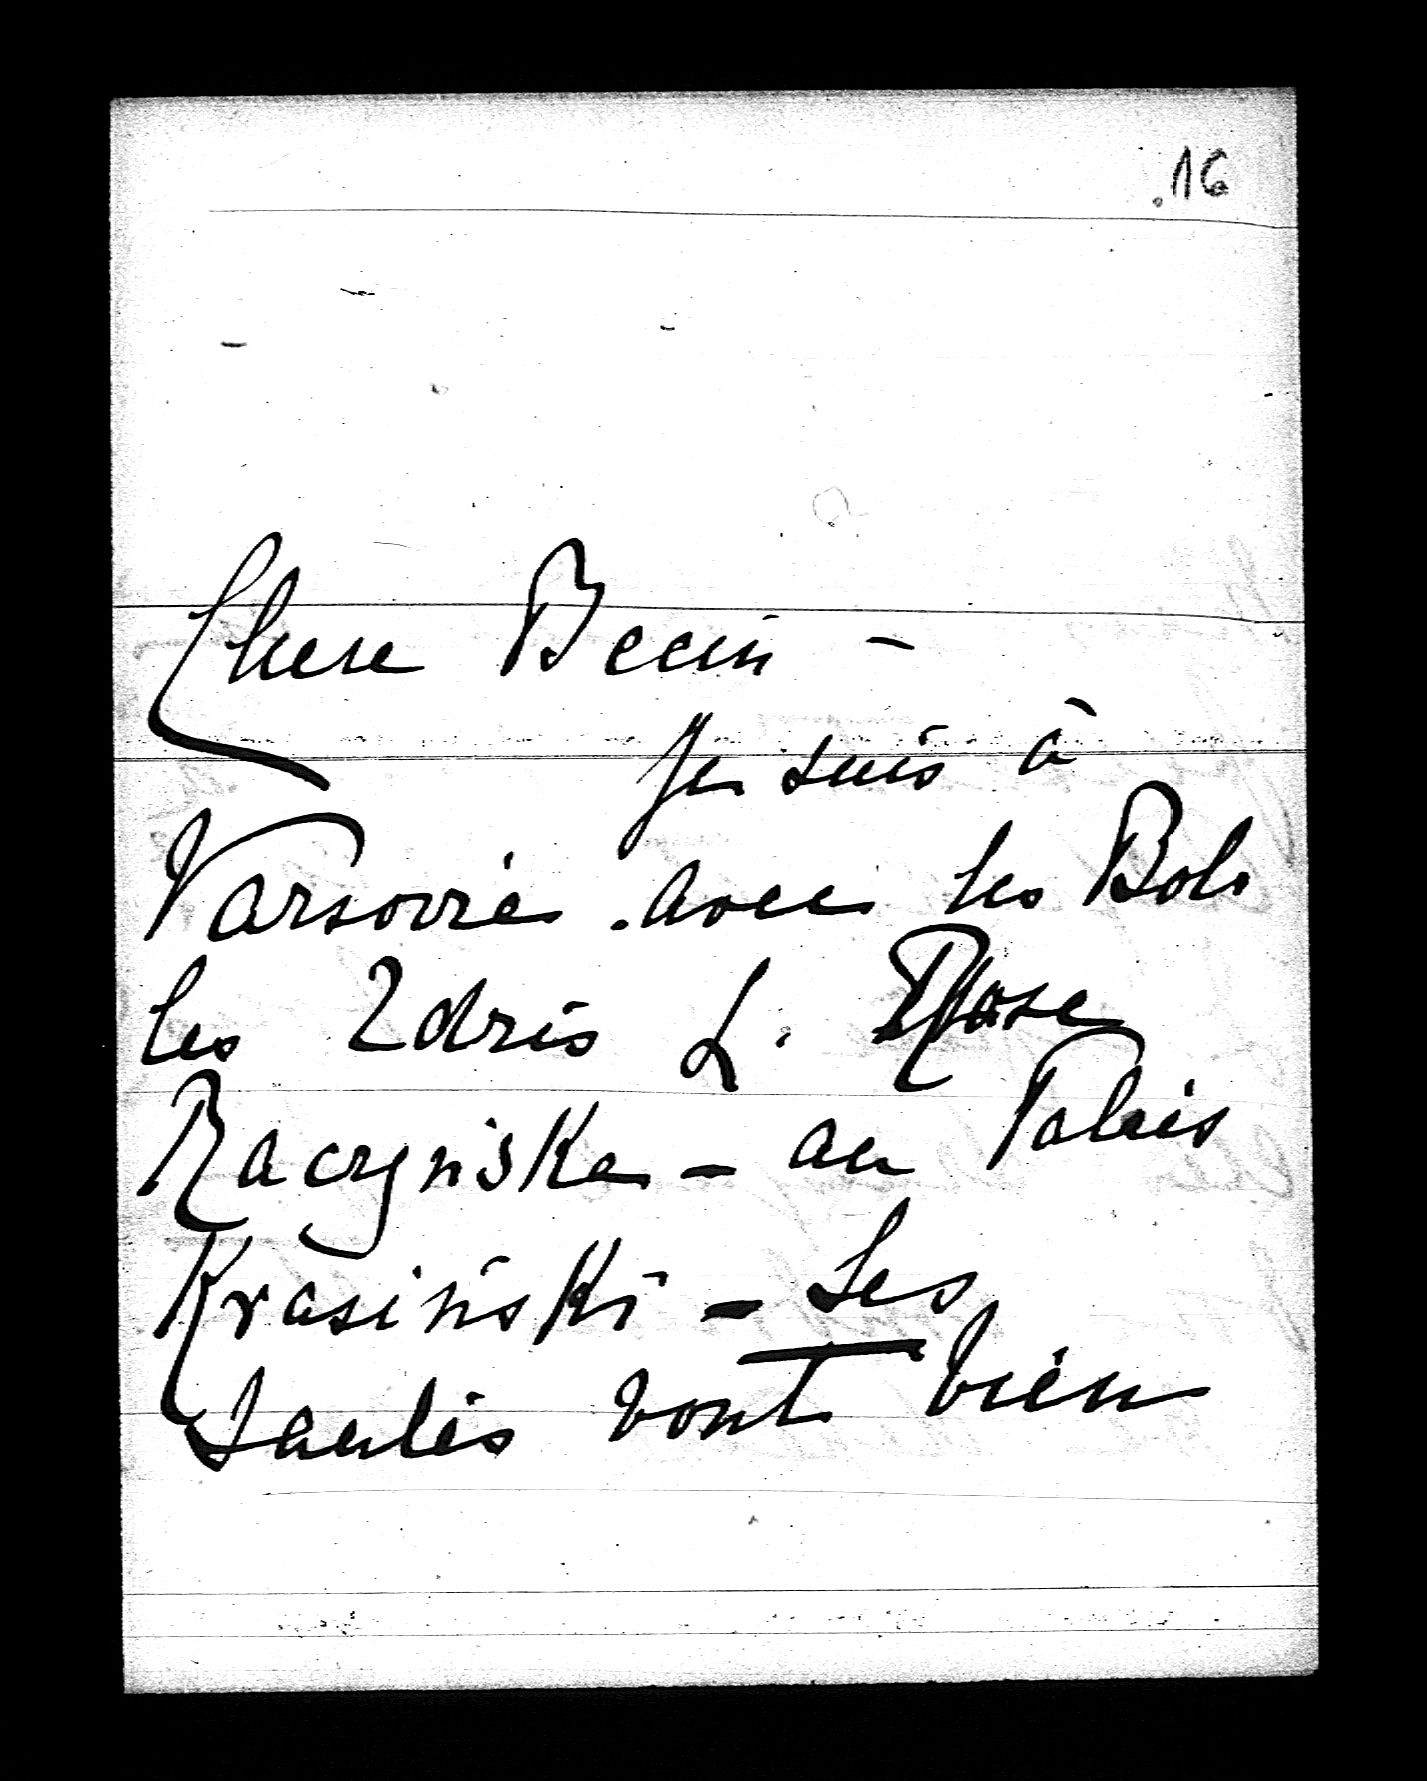 16
Chere Becin –
Je suis à
Varsovie. avec les Bols
les Zdris L. Rose
Raczyńska – au Palais
Krasiński – Les
Saulis vont bien